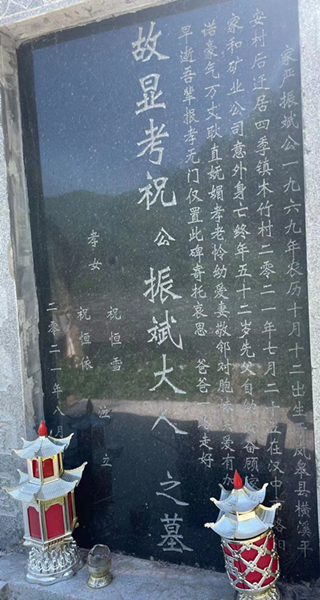 家严振斌公一九六九年农历十月十二出生 凤泉县横溪平
安村后迁居四季镇木竹村二零二一年七月二十五在汉中
家和矿业公司意外身亡终年五十二岁先父自 备顾家
诺豪气万丈耿直妩媚孝老怜幼爱妻敬邻对胞 爱有
早逝吾辈报孝无门仅置此碑寄托哀思 爸爸 走好
故显考祝公振斌大人之墓
孝女 祝恒雪 泣立
祝恒依
二零二一年八月